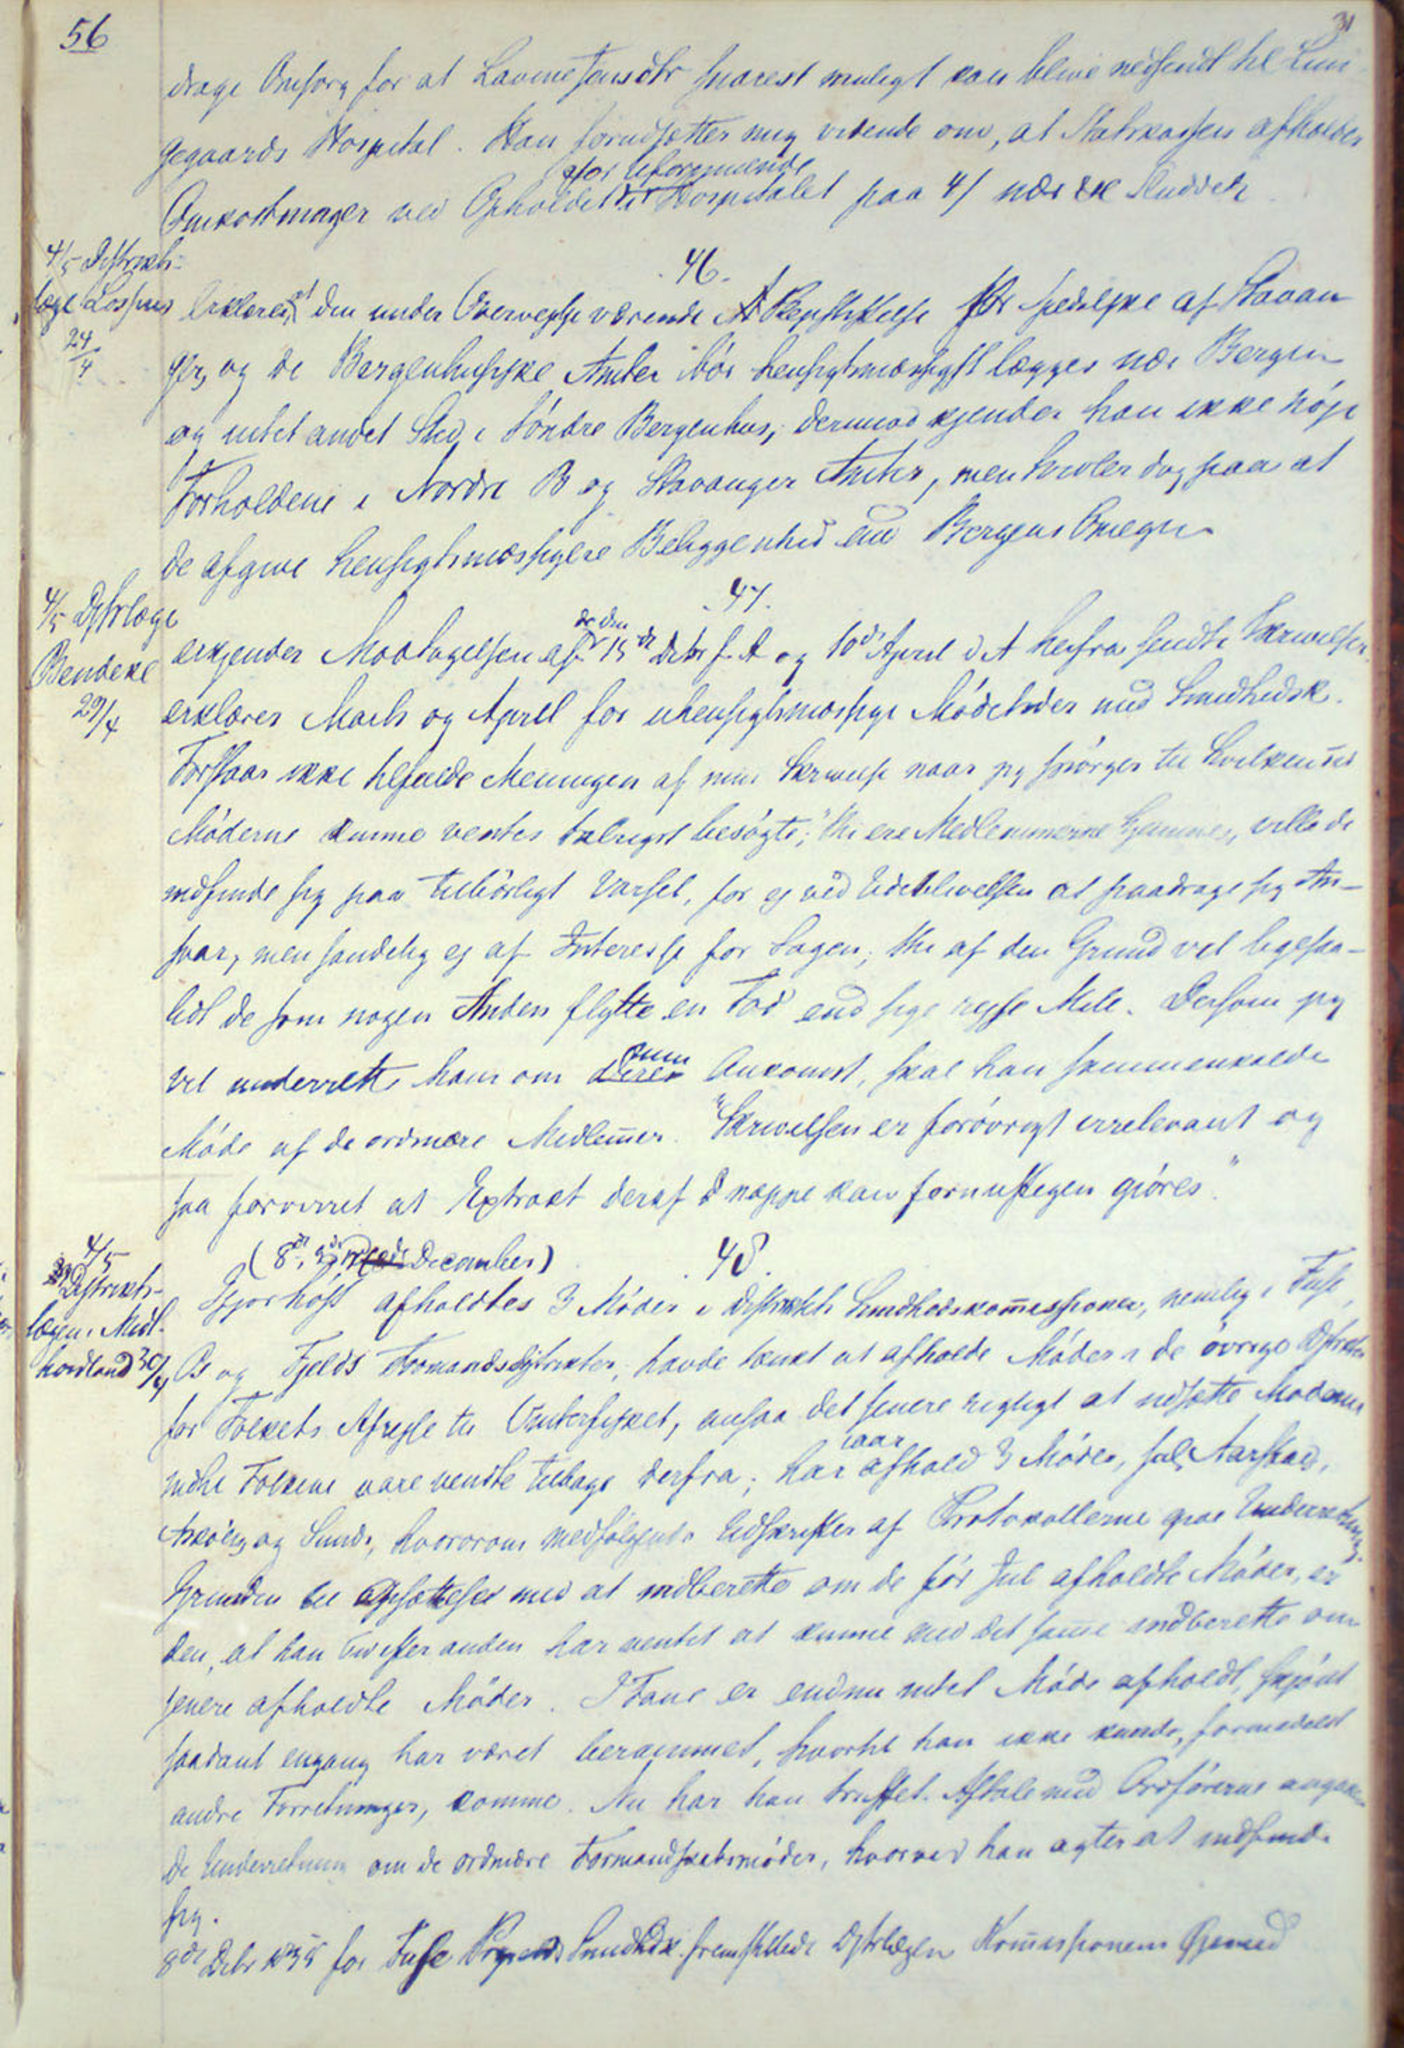 56
31
drage Omsorg for at Lavine Jensdtr snarest muligt kan blive nedsendt til Lun
gegaards Hospital. Han forudsætter mig vidende om, at Statskassen afholder
for Uformuende
Omkostninger ved Opholdet i Hospitalet paa 4/ nær
46.
4/5 Distrikts-
læge
24/4
erklærer, at den under Overveielse værende Pleiestiftelse for spedalske af Stavan
ger, og de Bergenhusiske Amter bör hensigtsmæssigst lægges nær Bergen
og intet andet Sted i Söndre Bergenhus, derimod kjender han ikke nöje
Forholdene i Nordre B og Stavanger Amter, men tvivler dog paa at
de afgive hensigtsmæssigere Beliggenhed end Bergens Omegn
47.
4/5 Distrlæge
Bendeke
29/4
erkjender Modtagelsen af de den 15de Debr f. A og 10de April d A herfra sendte Skrivelser,
erklærer Marts og April for uhensigtsmæssige Mödetider med Sundhedsk.
Forstaar ikke tilfulde Meningen af min Skrivelse naar jeg spörger til hvilken Tid
Möderne kunne ventes talrigst besögte; "thi ere Medlemmerne hjemme, ville de
indfinde sig paa tilbörligt Varsel, for ej ved Udeblivelsen at paadrage sig An-
svar, men sandelig ej af Interesse for Sagen; thi af den Grund vil ligesaa-
lidt de som nogen Anden flytte en Fod end sige rejse Mile. Dersom jeg
vil underrette ham om min Ankomst, skal han sammenkalde
Möde af de ordinære Medlemmer. "Skrivelsen er forövrigt irrelevant og
saa forvirret at Extrakt deraf næppe kan fornuftigen gjöres"
(8de, December)
48.
4/5
Distrikts-
lægen i Midt-
hordland 30/4
Ifjorhöst afholdtes 3 Möder i Distriktets Sundhedskommissioner, nemlig i Fuse,
Os og Fjelds Formandsdistrikter, havde tænkt at afholde Möder i de övrige Distrikter
för Folkets Afrejse til Vinterfisket, ansaa det senere rigtigt at udsætte Möderne
indtil Folkene vare vendte tilbage derfra; har iaar afholdt 3 Möder, Aarstad,
Asköen og Sund, hvorom medfölgende Udskrifter af Protokollerne give Underretning.
Grunden til Opsættelsen med at indberette om de för Jul afholdte Möder, er
den, at han har ventet at kunne med det samme indberette om
senere afholdte Möder. I Fane er endnu intet Möde afholdt, skjönt
saadant engang har været berammet, hvortil han ikke kunde, formedelst
andre Forretninger, komme. Nu har han truffet Aftale med Ordförerne angaaen
de Underretning om de ordinære Formandskabsmöder, hvorved han agter at indfinde
sig.
8de Debr for Fuse Sundhdsk. fremstillede Distrlægen Kommissionens Öjemed